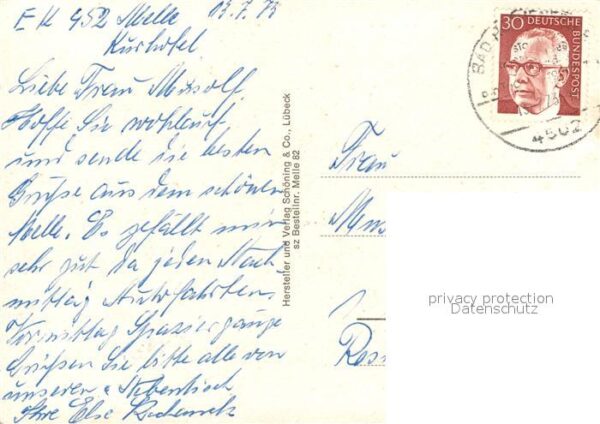 EK 952 Melle 03.7.73
Kurhotel
Liebe Frau
Hoffe Sie wohlauf
und sende die besten
Grüße aus dem schönen
Melle. Es gefällt mir
sehr gut da jeden Nach
mittag Autofahrten.
Vormittag Spaziergänge
Grüßen Sie bitte alle von
unseren u. Nebentisch
Ihre Else
Hersteller und Verlag Schöning & Co., Lübeck
sz Bestellnr. Melle 82
30 DEUTSCHE
BUNDESPOST
BAD
4502
Frau
privacy protection
Datenschutz